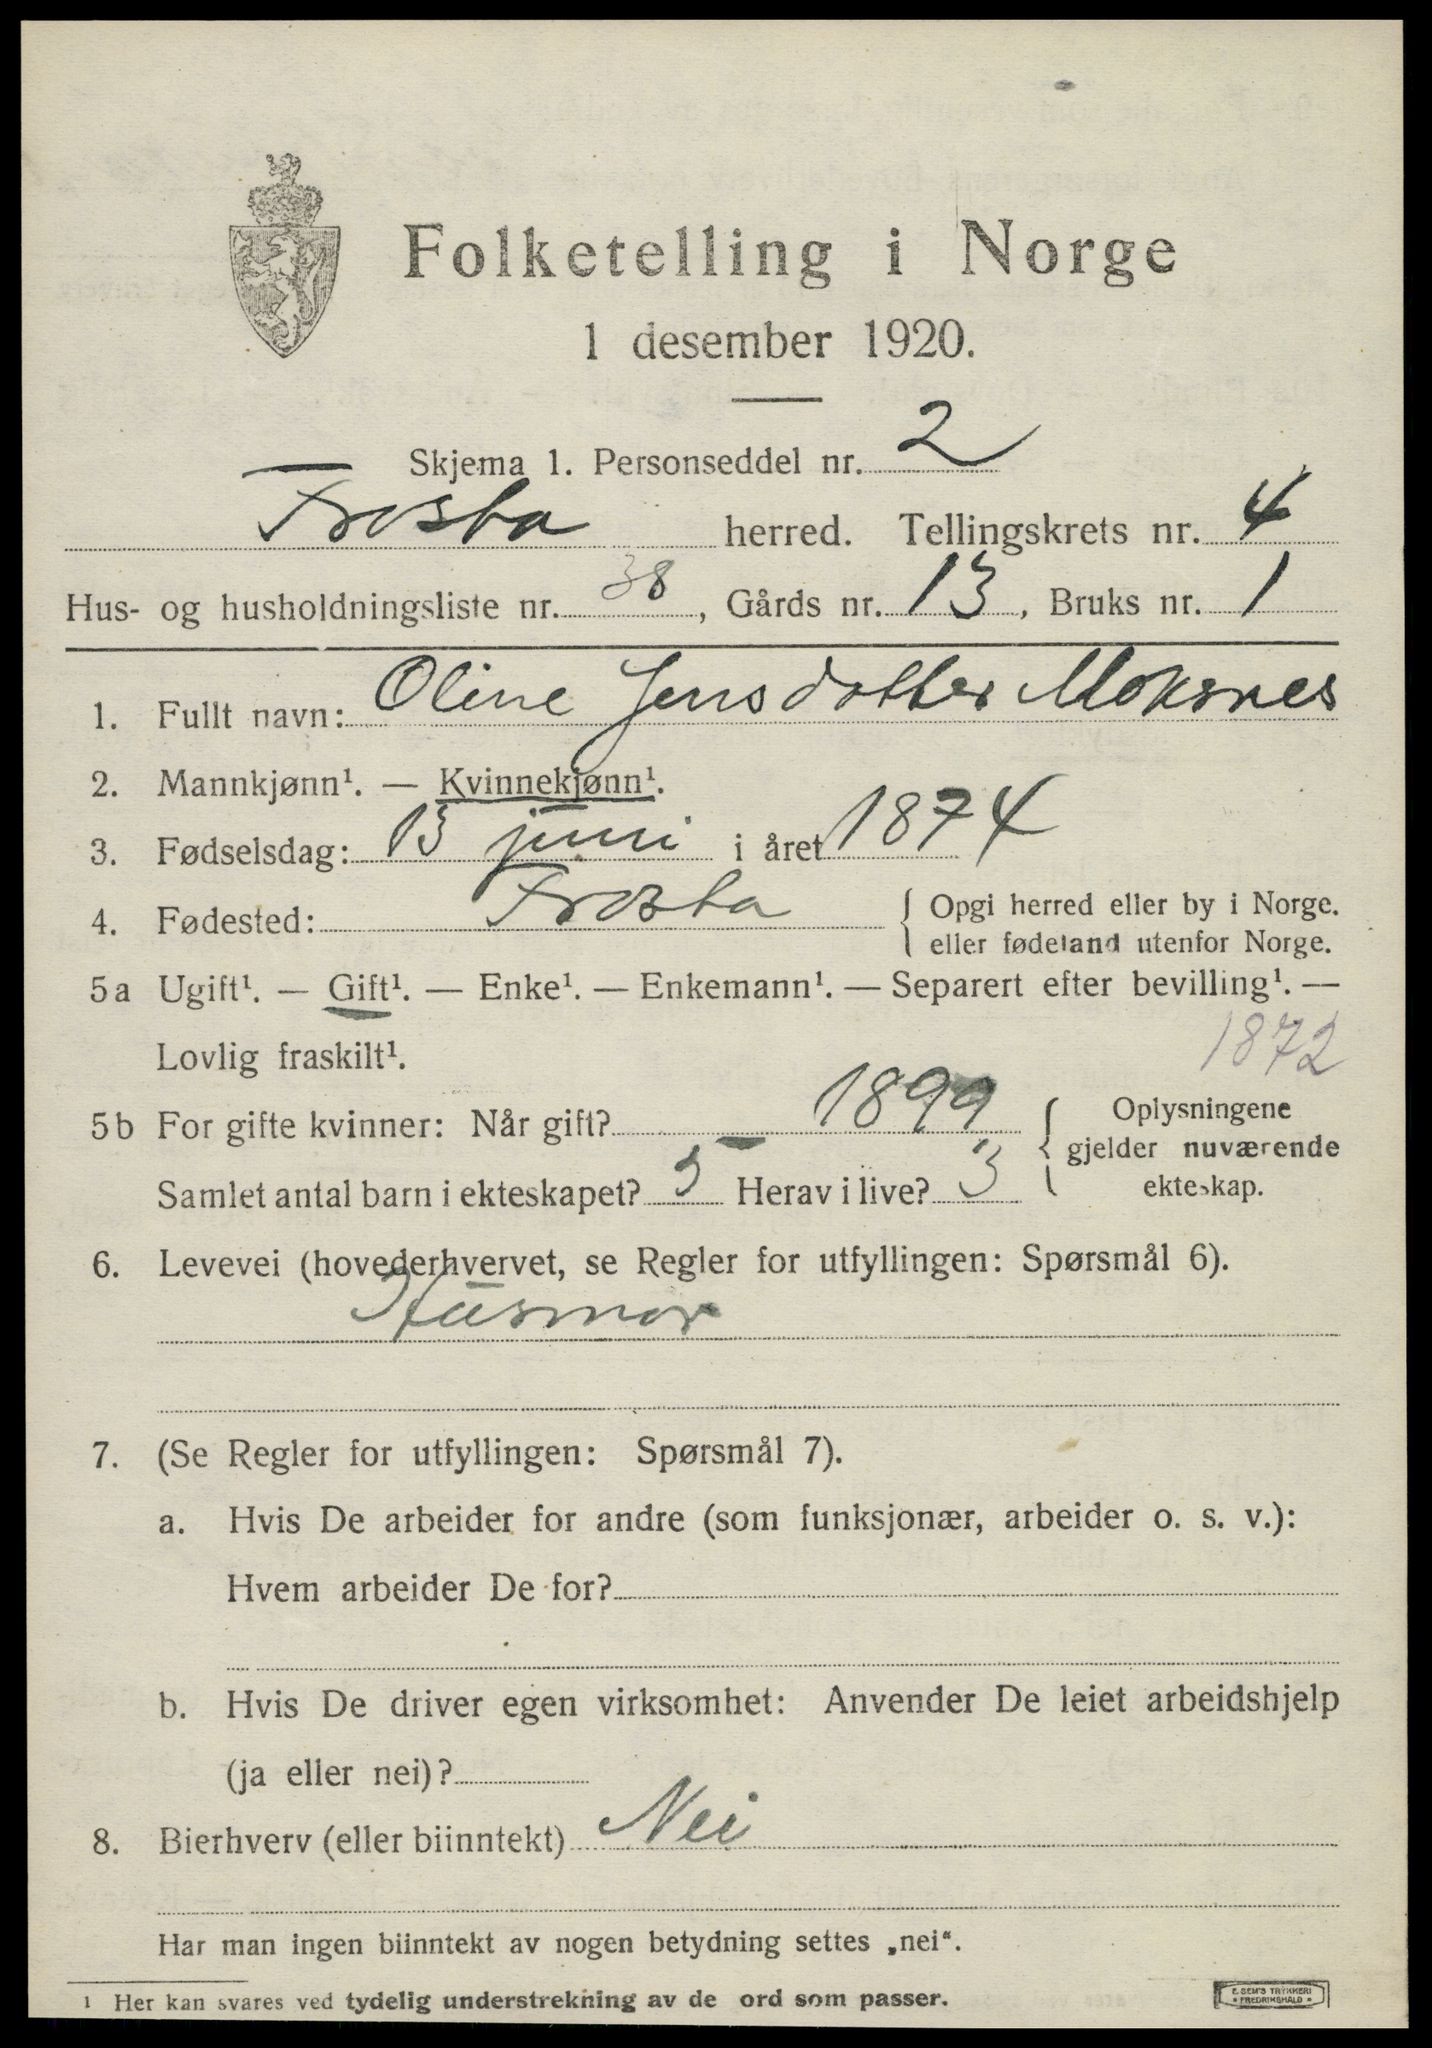 Folketelling i Norge
1 desember 1920.
Skjema 1. Personseddel nr. 2
Frosta herred. Tellingskrets nr. 4
Hus- og husholdningsliste nr. 38, Gårds nr. 13, Bruks nr. 1
1. Fullt navn: Oline Jensdatter Moksnes
2. Mannkjønn¹. — Kvinnekjønn¹.
3. Fødselsdag: 13 juni i året 1874
4. Fødested: Frosta { Opgi herred eller by i Norge.
eller fødeland utenfor Norge.
5a Ugift¹. — Gift¹. — Enke¹. — Enkemann¹. — Separert efter bevilling¹. —
Lovlig fraskilt¹.
1872
5b For gifte kvinner: Når gift? 1899
Samlet antal barn i ekteskapet? 5 Herav i live? 3
Oplysningene
gjelder nuværende
ekteskap.
6. Levevei (hovederhvervet, se Regler for utfyllingen: Spørsmål 6).
Husmor
7. (Se Regler for utfyllingen: Spørsmål 7).
a. Hvis De arbeider for andre (som funksjonær, arbeider o. s. v.):
Hvem arbeider De for?
b. Hvis De driver egen virksomhet: Anvender De leiet arbeidshjelp
(ja eller nei)?
8. Bierhverv (eller biinntekt) Nei
Har man ingen biinntekt av nogen betydning settes „nei“.
1 Her kan svares ved tydelig understrekning av de ord som passer.
E. SEM'S TRYKKERI
• FREDRIKSHALD •